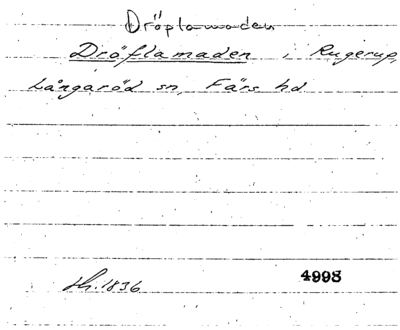 Dröplamaden
Dröflamaden i Rugerup,
Långaröd sn, Färs hd
Sk. 1836
4998